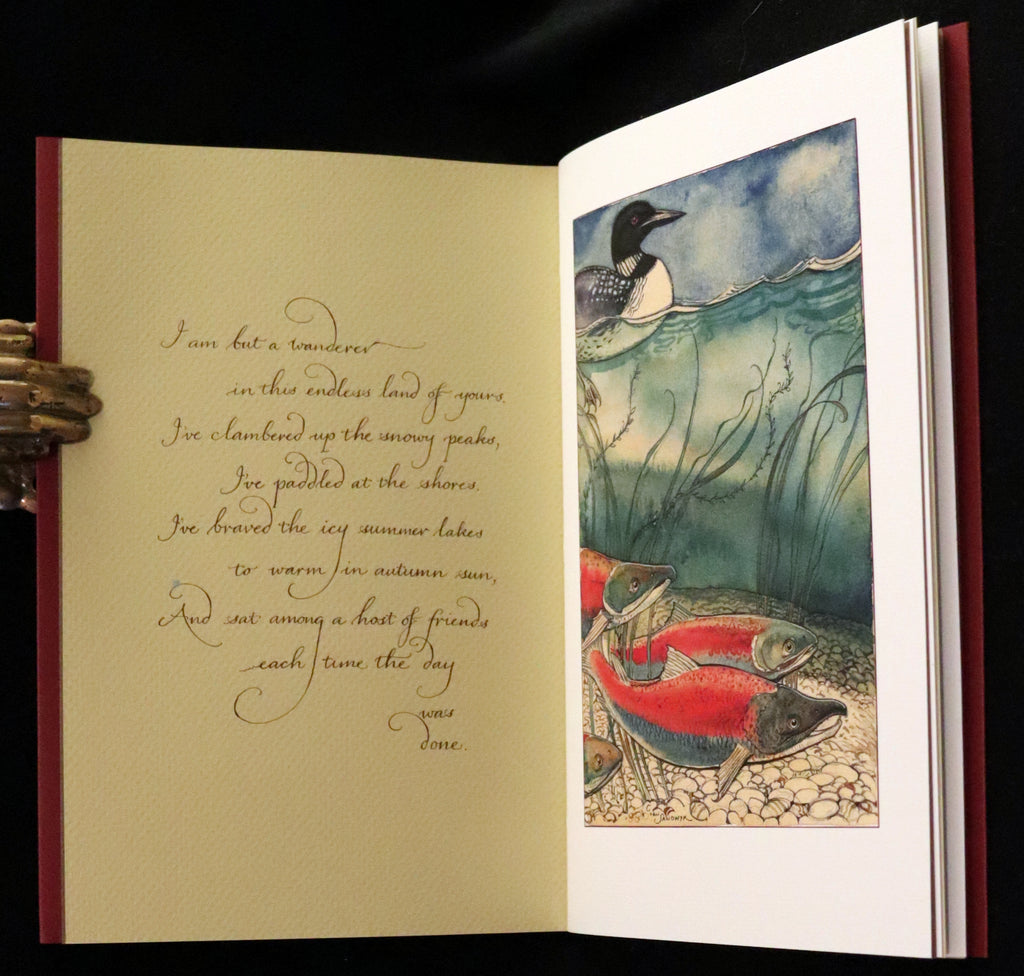 I am but a wanderer
in this endless land of yours.
I've clambered up the snowy peaks,
I've paddled at the shores.
I've braved the icy summer lakes
to warm in autumn sun,
And sat among a host of friends
each time the day
was
done.